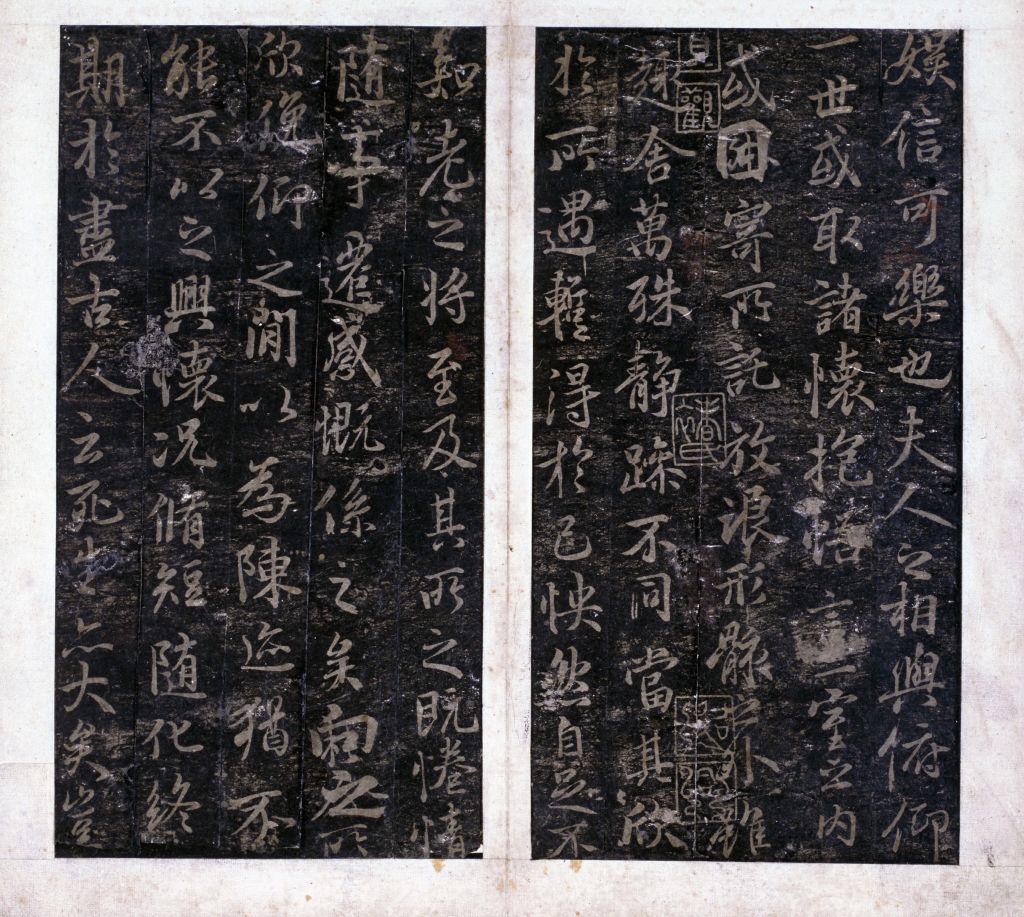 娛信可樂也夫人之相與俯仰
一世或取諸懷抱悟言一室之內
或因寄所託放浪形骸之外雖
趣舍萬殊靜躁不同當其欣
於所遇暫得於己怏然自足不
知老之將至及其所之既惓情
隨事遷感慨係之矣向之所
欣俛仰之閒以為陳迹猶不
能不以之興懷況脩短隨化終
期於盡古人云死生亦大矣豈